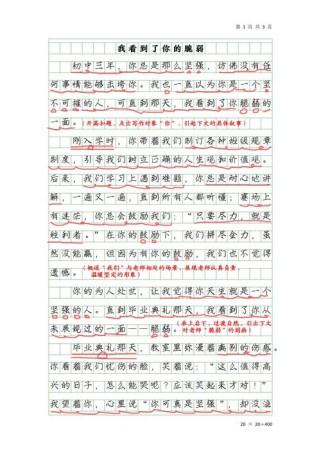 第 1 页 共 3 页
我看到了你的脆弱
初中三年，你总是那么坚强，仿佛没有任
何事情能够击垮你。我也一直以为你是一个坚
不可摧的人，可直到那天，我看到了你脆弱的
一面。（开篇扣题，点出写作对象“你”，引起下文的具体叙事）
刚入学时，你带着我们制订各种班级规章
制度，引导我们树立正确的人生观和价值观。
后来，我们学习上遇到难题，你总是耐心地讲
解，一遍又一遍，直到所有人都听懂；赛场上
有迷茫，你总会鼓励我们：“只要尽力，就是
胜利者。”在你的鼓励下，我们拼尽全力，虽
然没能赢，但因为有你的鼓励，我们也不觉得
遗憾。（概述“我们”与老师相处的场景，展现老师认真负责、
温暖坚定的形象）
你的为人处世，让我觉得你天生就是一个
坚强的人。直到毕业典礼那天，我看到了你从
未展现过的一面——脆弱。（承上启下，过渡自然，引出下文
对老师“脆弱”的刻画）
毕业典礼那天，教室里弥漫着离别的伤感。
你看着我们忧伤的脸，笑着说：“这么值得高
兴的日子，怎么能哭呢？应该笑起来才对！”
我望着你，心里说“你可真是坚强”，却没注
20 × 20=400